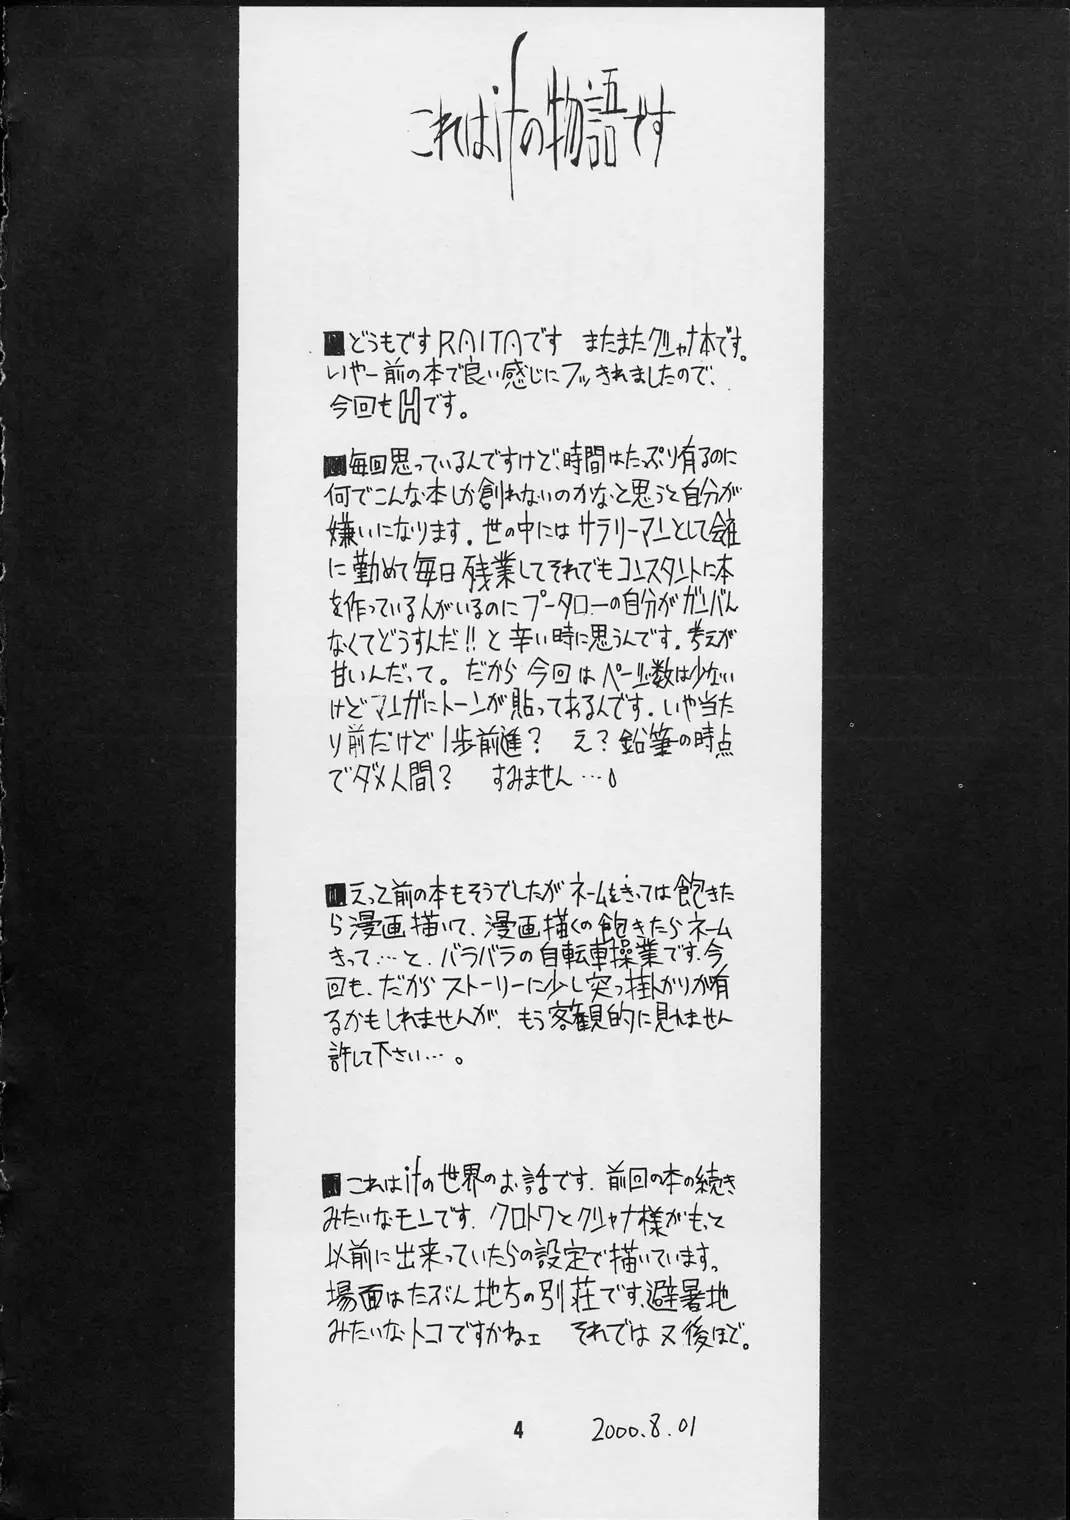 これはifの物語です
■どうもですRAITAです またまたクシャナ本です。
いやー前の本で良い感じにフッきれましたので、
今回もHです。
■毎回思っているんですけど、時間はたっぷり有るのに
何でこんな本しか創れないのかなと思うと自分が
嫌いになります。世の中にはサラリーマンとして会社
に勤めて毎日残業してそれでもコンスタントに本
を作っている人がいるのにプータローの自分がガンバん
なくてどうすんだ!!と辛い時に思うんです。考えが
甘いんだって。だから今回はページ数は少ない
けどマンガにトーンが貼ってあるんです。いや当た
り前だけど1歩前進? え?鉛筆の時点
でダメ人間? すみません…。
■えって前の本もそうでしたがネームをきっては飽きた
ら漫画描いて、漫画描くの飽きたらネーム
きって…と、バラバラの自転車操業です。今
回も、だからストーリーに少し突っ掛かりが有
るかもしれませんが、もう客観的に見れません
許して下さい…。
■これはifの世界のお話です。前回の本の続き
みたいなモンです。クロトワとクシャナ様がもっと
以前に出来っていたらの設定で描いています。
場面はたぶん地方の別荘です、避暑地
みたいなトコですかねェ それでは又後ほど。
4
2000.8.01